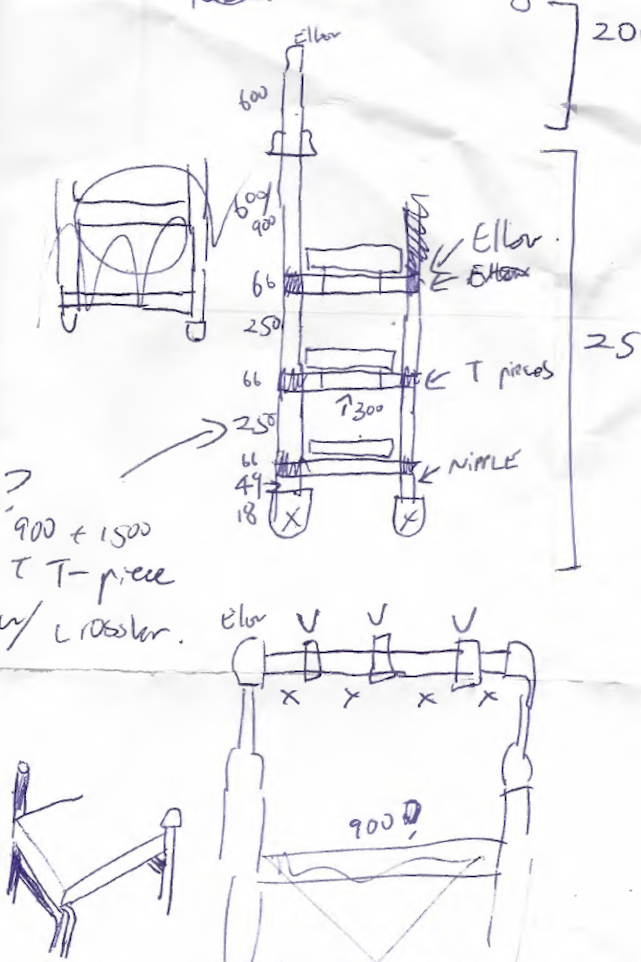 Elbow
20
600
600/
900
Elbow
66
250
25
66
T pieces
↑300
250
66
NIPPLE
49
18
X X
?
900 + 1500
T T-piece
w/ crossbar.
Elbow V V V
X X X X
900?